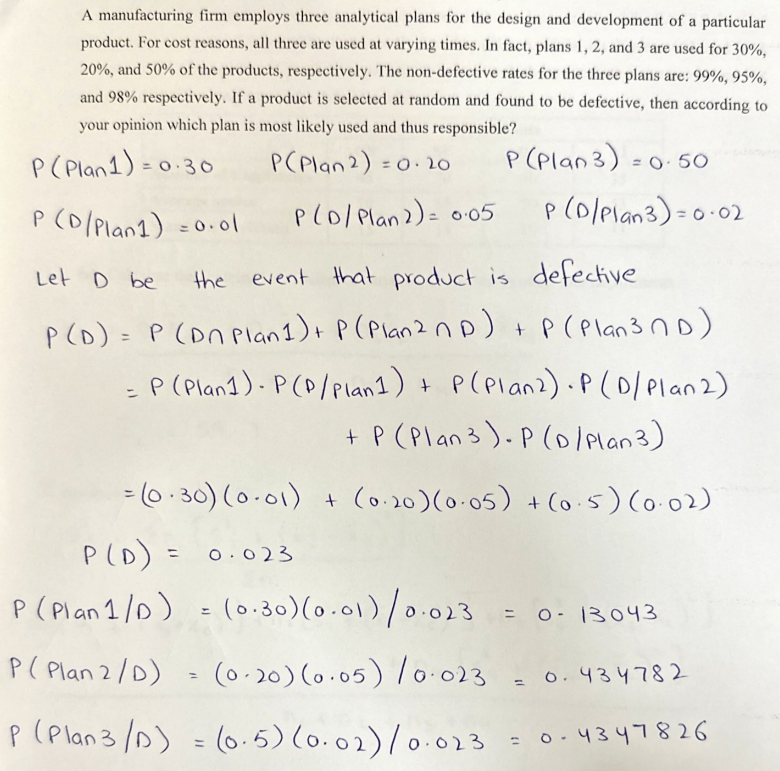 A manufacturing firm employs three analytical plans for the design and development of a particular
product. For cost reasons, all three are used at varying times. In fact, plans 1, 2, and 3 are used for 30%,
20%, and 50% of the products, respectively. The non-defective rates for the three plans are: 99%, 95%,
and 98% respectively. If a product is selected at random and found to be defective, then according to
your opinion which plan is most likely used and thus responsible?
P(Plan1) = 0.30 P(Plan2) = 0.20 P(Plan3) = 0.50
P(D/Plan1) = 0.01 P(D/Plan2) = 0.05 P(D/Plan3) = 0.02
Let D be the event that product is defective
P(D) = P(D∩Plan1) + P(Plan2∩D) + P(Plan3∩D)
= P(Plan1).P(D/Plan1) + P(Plan2).P(D/Plan2)
+ P(Plan3).P(D/Plan3)
= (0.30)(0.01) + (0.20)(0.05) + (0.5)(0.02)
P(D) = 0.023
P(Plan1/D) = (0.30)(0.01)/0.023 = 0.13043
P(Plan2/D) = (0.20)(0.05)/0.023 = 0.434782
P(Plan3/D) = (0.5)(0.02)/0.023 = 0.4347826